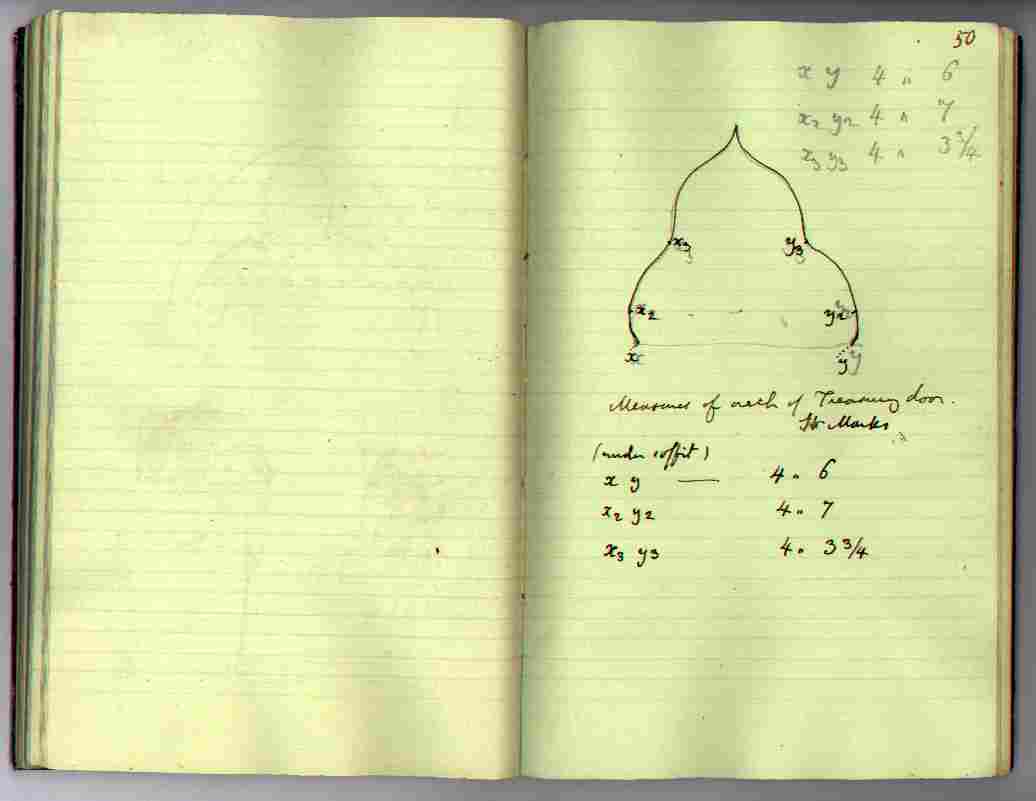 50
x y 4 " 6
x2 y2 4 " 7
x3 y3 4 " 3 3/4
x3 y3
x2 y2
x y
Measures of arch of Treasury door.
St Marks
(under soffit)
x y — 4 " 6
x2 y2 4 " 7
x3 y3 4 " 3 3/4